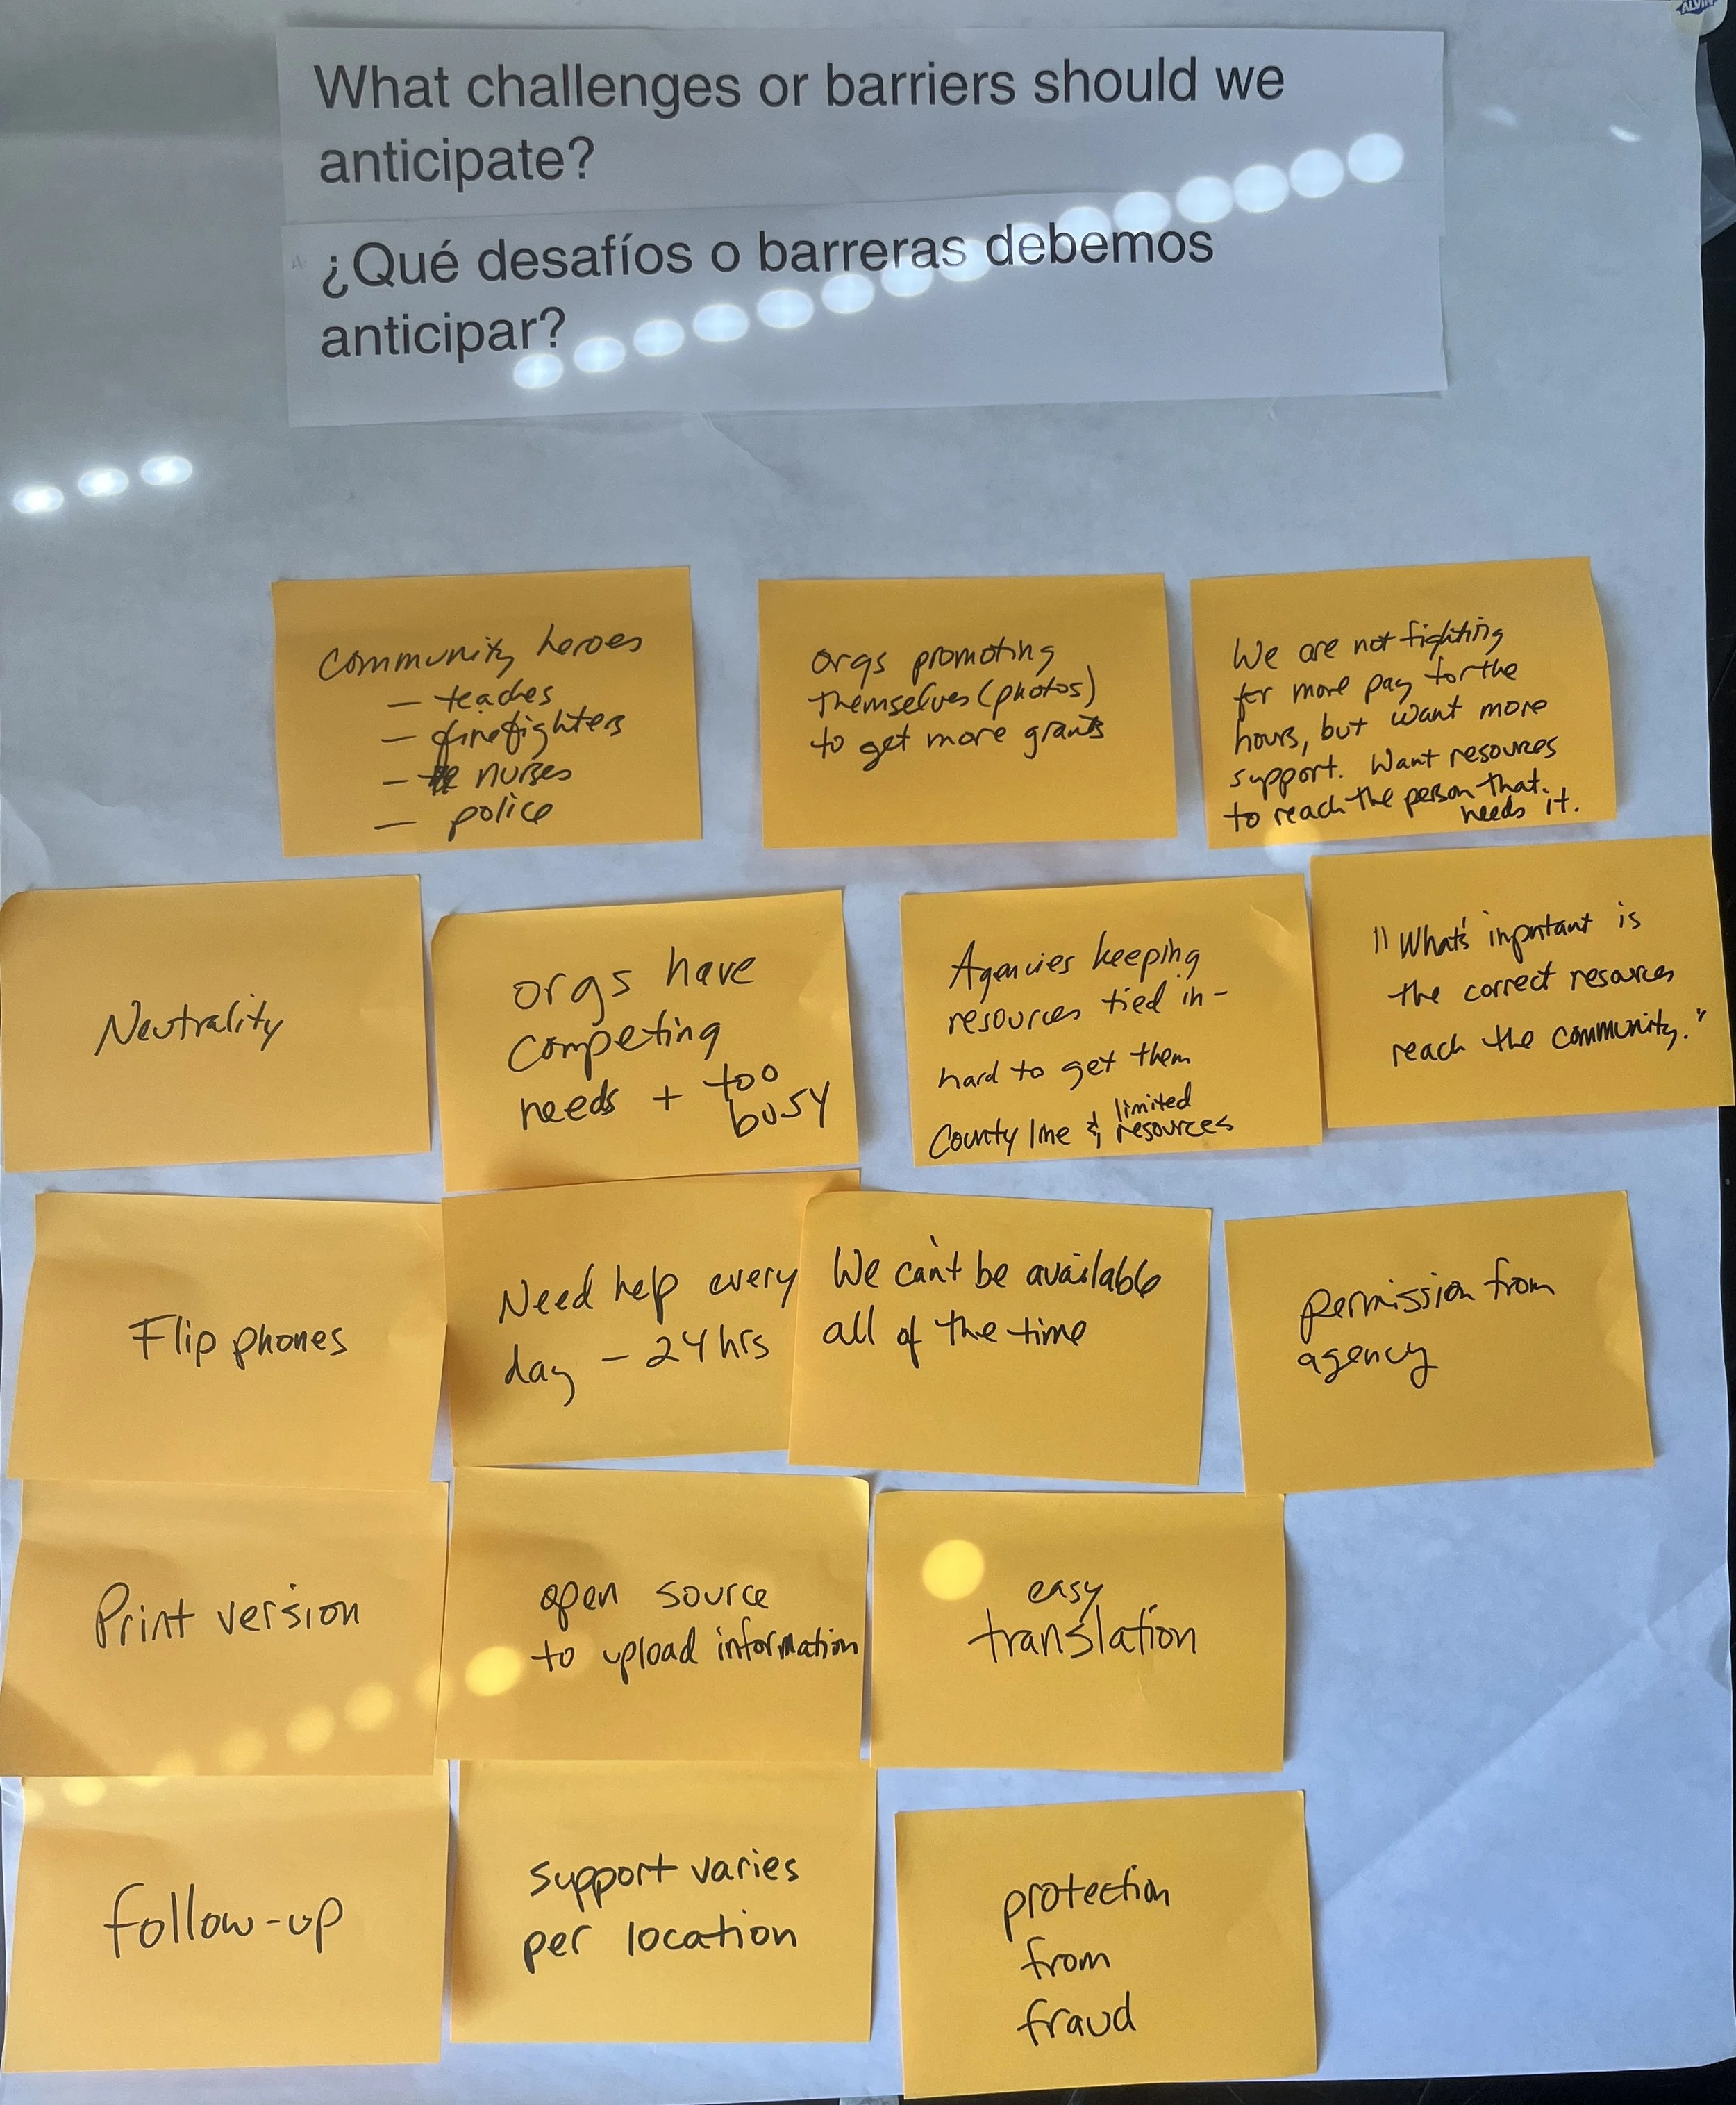 ALVIN
What challenges or barriers should we
anticipate?
¿Qué desafíos o barreras debemos
anticipar?
Community heroes
— teaches
— firefighters
— nurses
— police
orgs promoting
themselves (photos)
to get more grants
We are not fighting
for more pay for the
hours, but want more
support. Want resources
to reach the person that
needs it.
Neutrality
orgs have
competing
needs + too
busy
Agencies keeping
resources tied in-
hard to get them
County line & limited
resources
"What's inportant is
the correct resources
reach the community."
Flip phones
Need help every
day - 24 hrs
We can't be available
all of the time
permission from
agency
Print version
open source
to upload information
easy
translation
follow-up
support varies
per location
protection
from
fraud